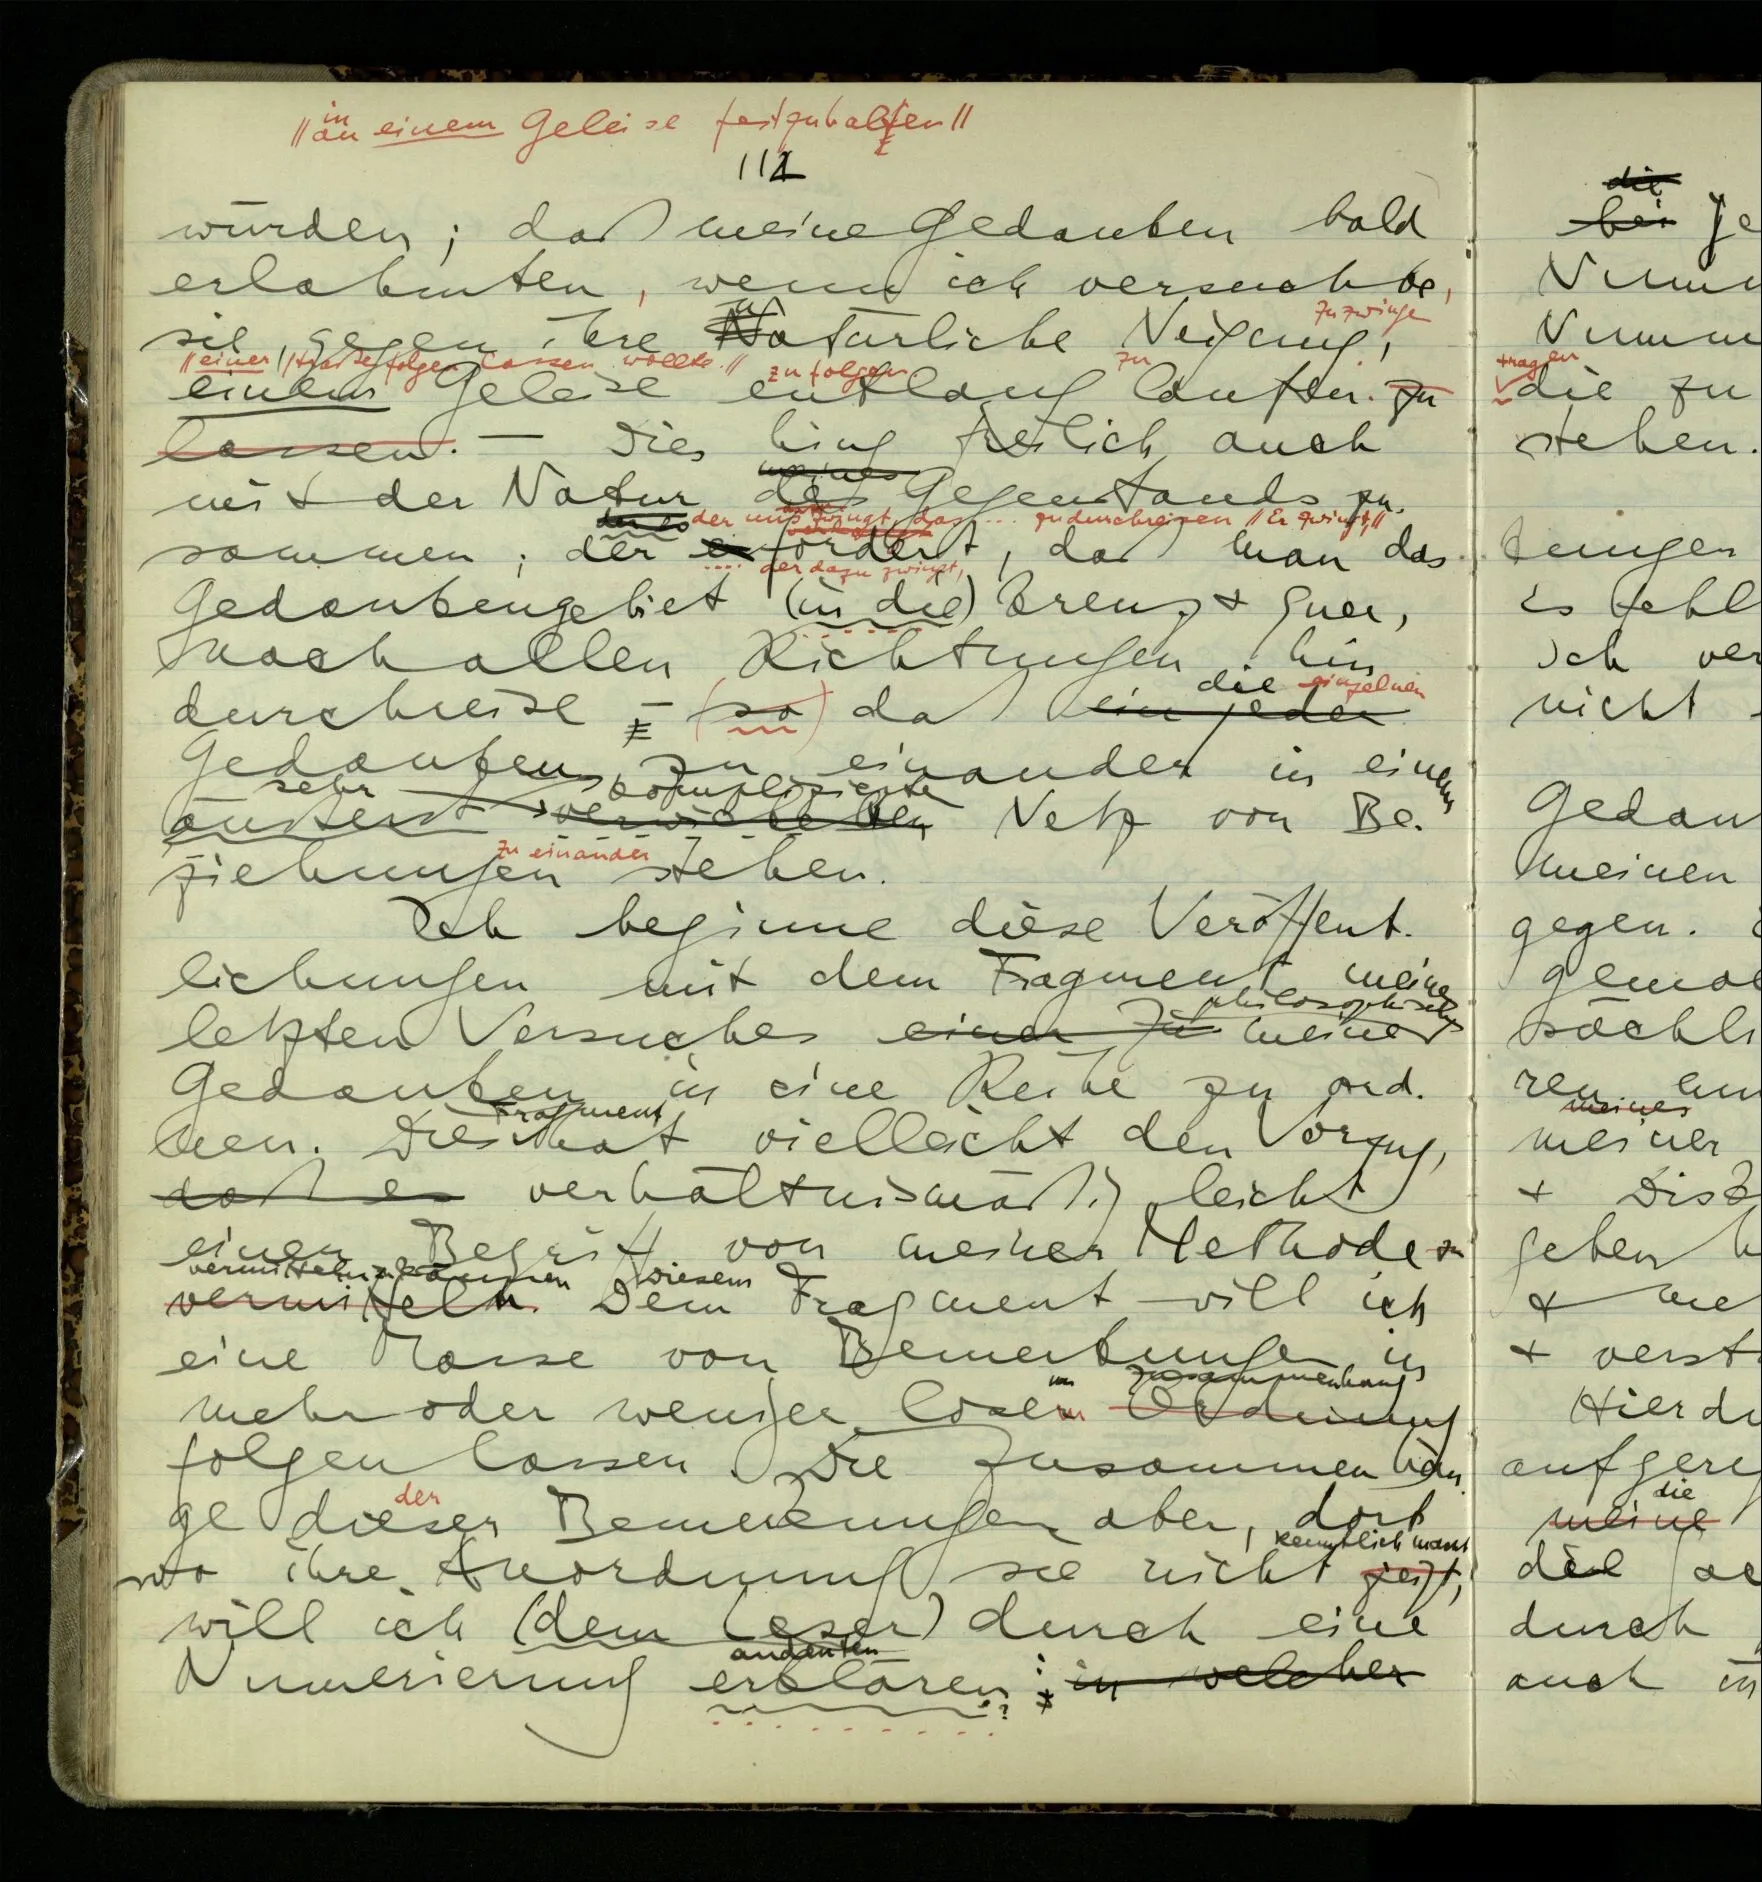 " in
an einem Geleise festzuhalten "
112
würden; daß meine Gedanken bald
erlahmten, wenn ich versuchte,
zu zwingen
sie, gegen ihre natürliche Neigung,
" einer Straße folgen lassen wollte. " zu folgen zu
einem Geleise entlang laufen zu
lassen. — Dies hing freilich auch
meines
mit der Natur des Gegenstands zu-
der es der uns zwingt, das .... zu durchreisen " Er zwingt "
sammen; der erfordert, daß man das
.... der dazu zwingt,
Gedankengebiet (in die) kreuz + quer,
nach allen Richtungen hin
die einzelnen
durchreise – (so) daß ein jeder
Gedanken zu einander in einem
sehr komplizierten
äußerst verwickelten Netz von Be-
zu einander
ziehungen stehen.
Ich beginne diese Veröffent-
lichungen mit dem Fragment meines
philosophischen
letzten Versuches einer zu meine
Gedanken in eine Reihe zu ord-
Fragment
nen. Dies hat vielleicht den Vorzug,
daß es verhältnismäßig leicht
einen Begriff von meiner Methode zu
vermitteln zu können diesem
vermitteln. Dem Fragment will ich
eine Masse von Bemerkungen in
m Zusammenhang
mehr oder weniger loser Ordnung
folgen lassen. Die Zusammenhän-
der
ge dieser Bemerkungen aber, dort
kenntlich macht
wo ihre Anordnung sie nicht zeigt,
will ich (dem Leser) durch eine
andeuten
Numerierung erklären: in welcher
die
bei
tragen
die zu
stehen.
nicht
meinen
gegen.
meines
meiner
+
+
+ verst
die
meine
die
durch
auch